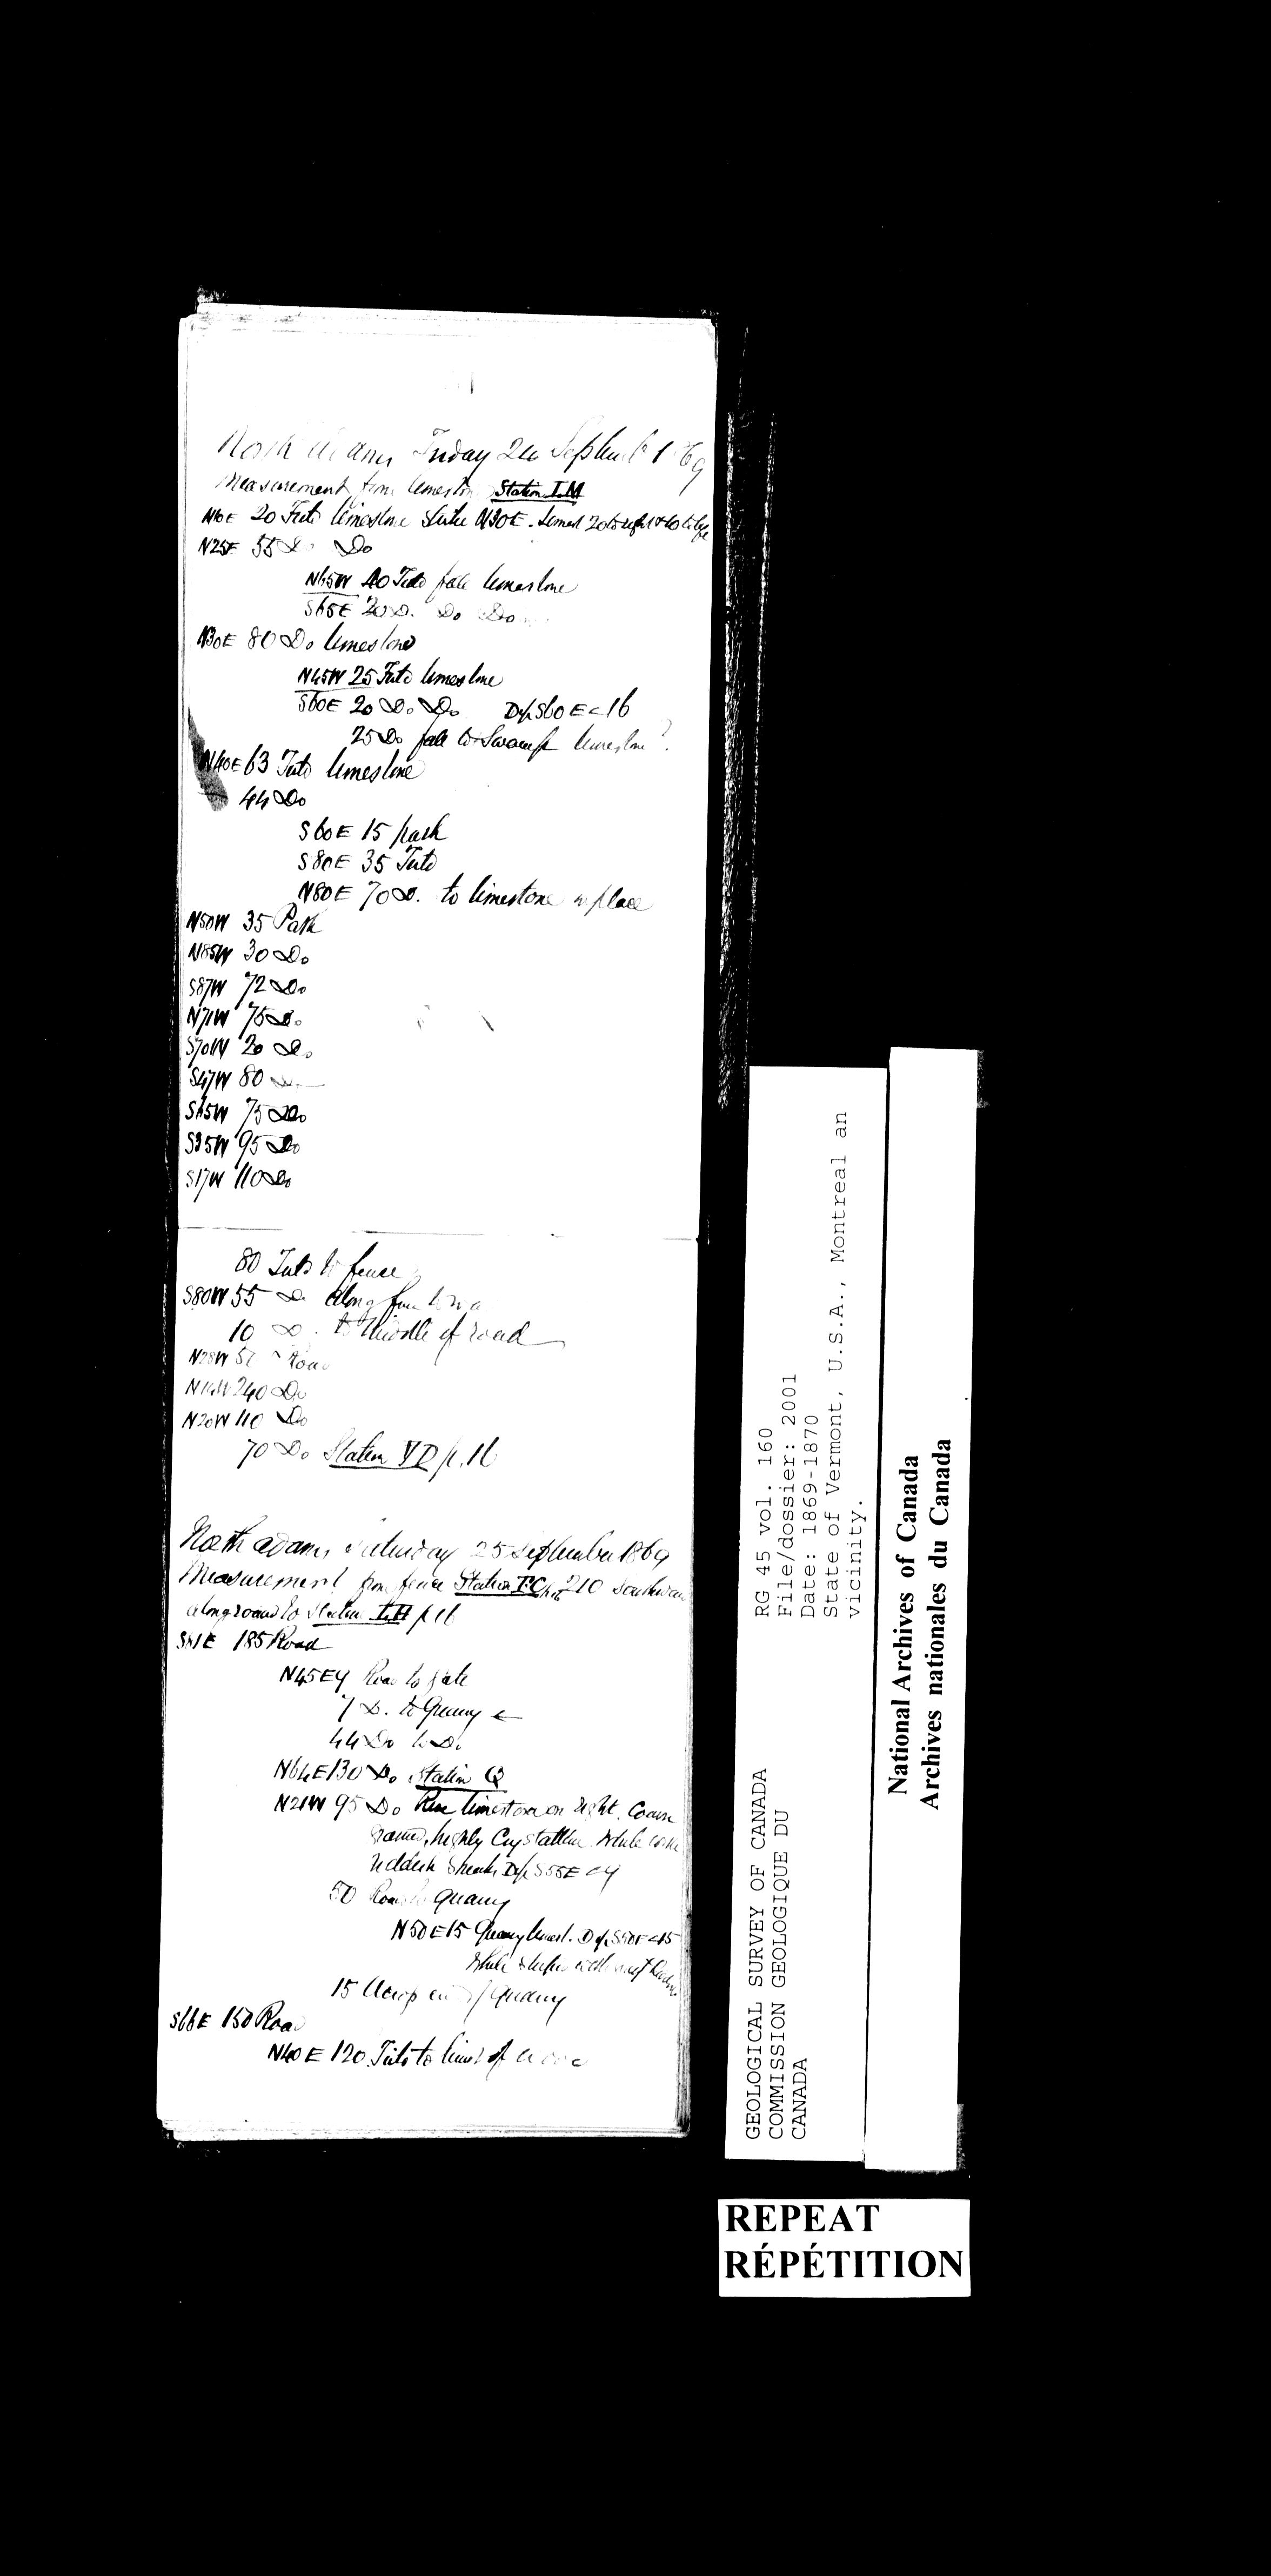 North Adams Friday 24 September 1869
Measurement from limestone Station I.M
N10E 20 Field limestone Strike N30E. Limest 20 to right & 60 to left
N25E 55 Do Do
N65W 40 Field fall limestone
S65E 20 Do. Do Do
N30E 80 Do limestone
N45W 25 Field limestone
S60E 20 Do Do Dip S60E < 16
25 Do fall to Swamp limestone?
N40E 63 Field limestone
44 Do
S60E 15 path
S80E 35 Field
N80E 70 Do. to limestone in place
N50W 35 Path
N85W 30 Do
S87W 72 Do
N71W 75 Do
S70W 20 Do
S47W 80
S45W 75 Do
S35W 95 Do
S17W 110 Do
80 Field to fence
S80W 55 Do along fence
10 Do. to Middle of road
N28W Road
N14W 240 Do
N20W 110 Do
70 Do Station VD p.16
North Adams Saturday 25 September 1869
Measurement from fence Station 210
along road to Station I.H p 16
185 Road
N45E 4 Road to gate
7 Do. to Quarry
44 Do to Do
N64E 130 Do Station Q
N21W 95 Do limestone on right. Coarse
grained, highly Crystalline. White
reddish streaks Dip S55E < 4
50 Road to Quarry
N50E 15 Quarry limest. Dip S50E < 15
White
15 Across end of Quarry
S66E 150 Road
N40E 120 Field to limest of
RG 45 vol. 160
File/dossier: 2001
Date: 1869-1870
State of Vermont, U.S.A., Montreal an
vicinity.
GEOLOGICAL SURVEY OF CANADA
COMMISSION GEOLOGIQUE DU
CANADA
National Archives of Canada
Archives nationales du Canada
REPEAT
RÉPÉTITION